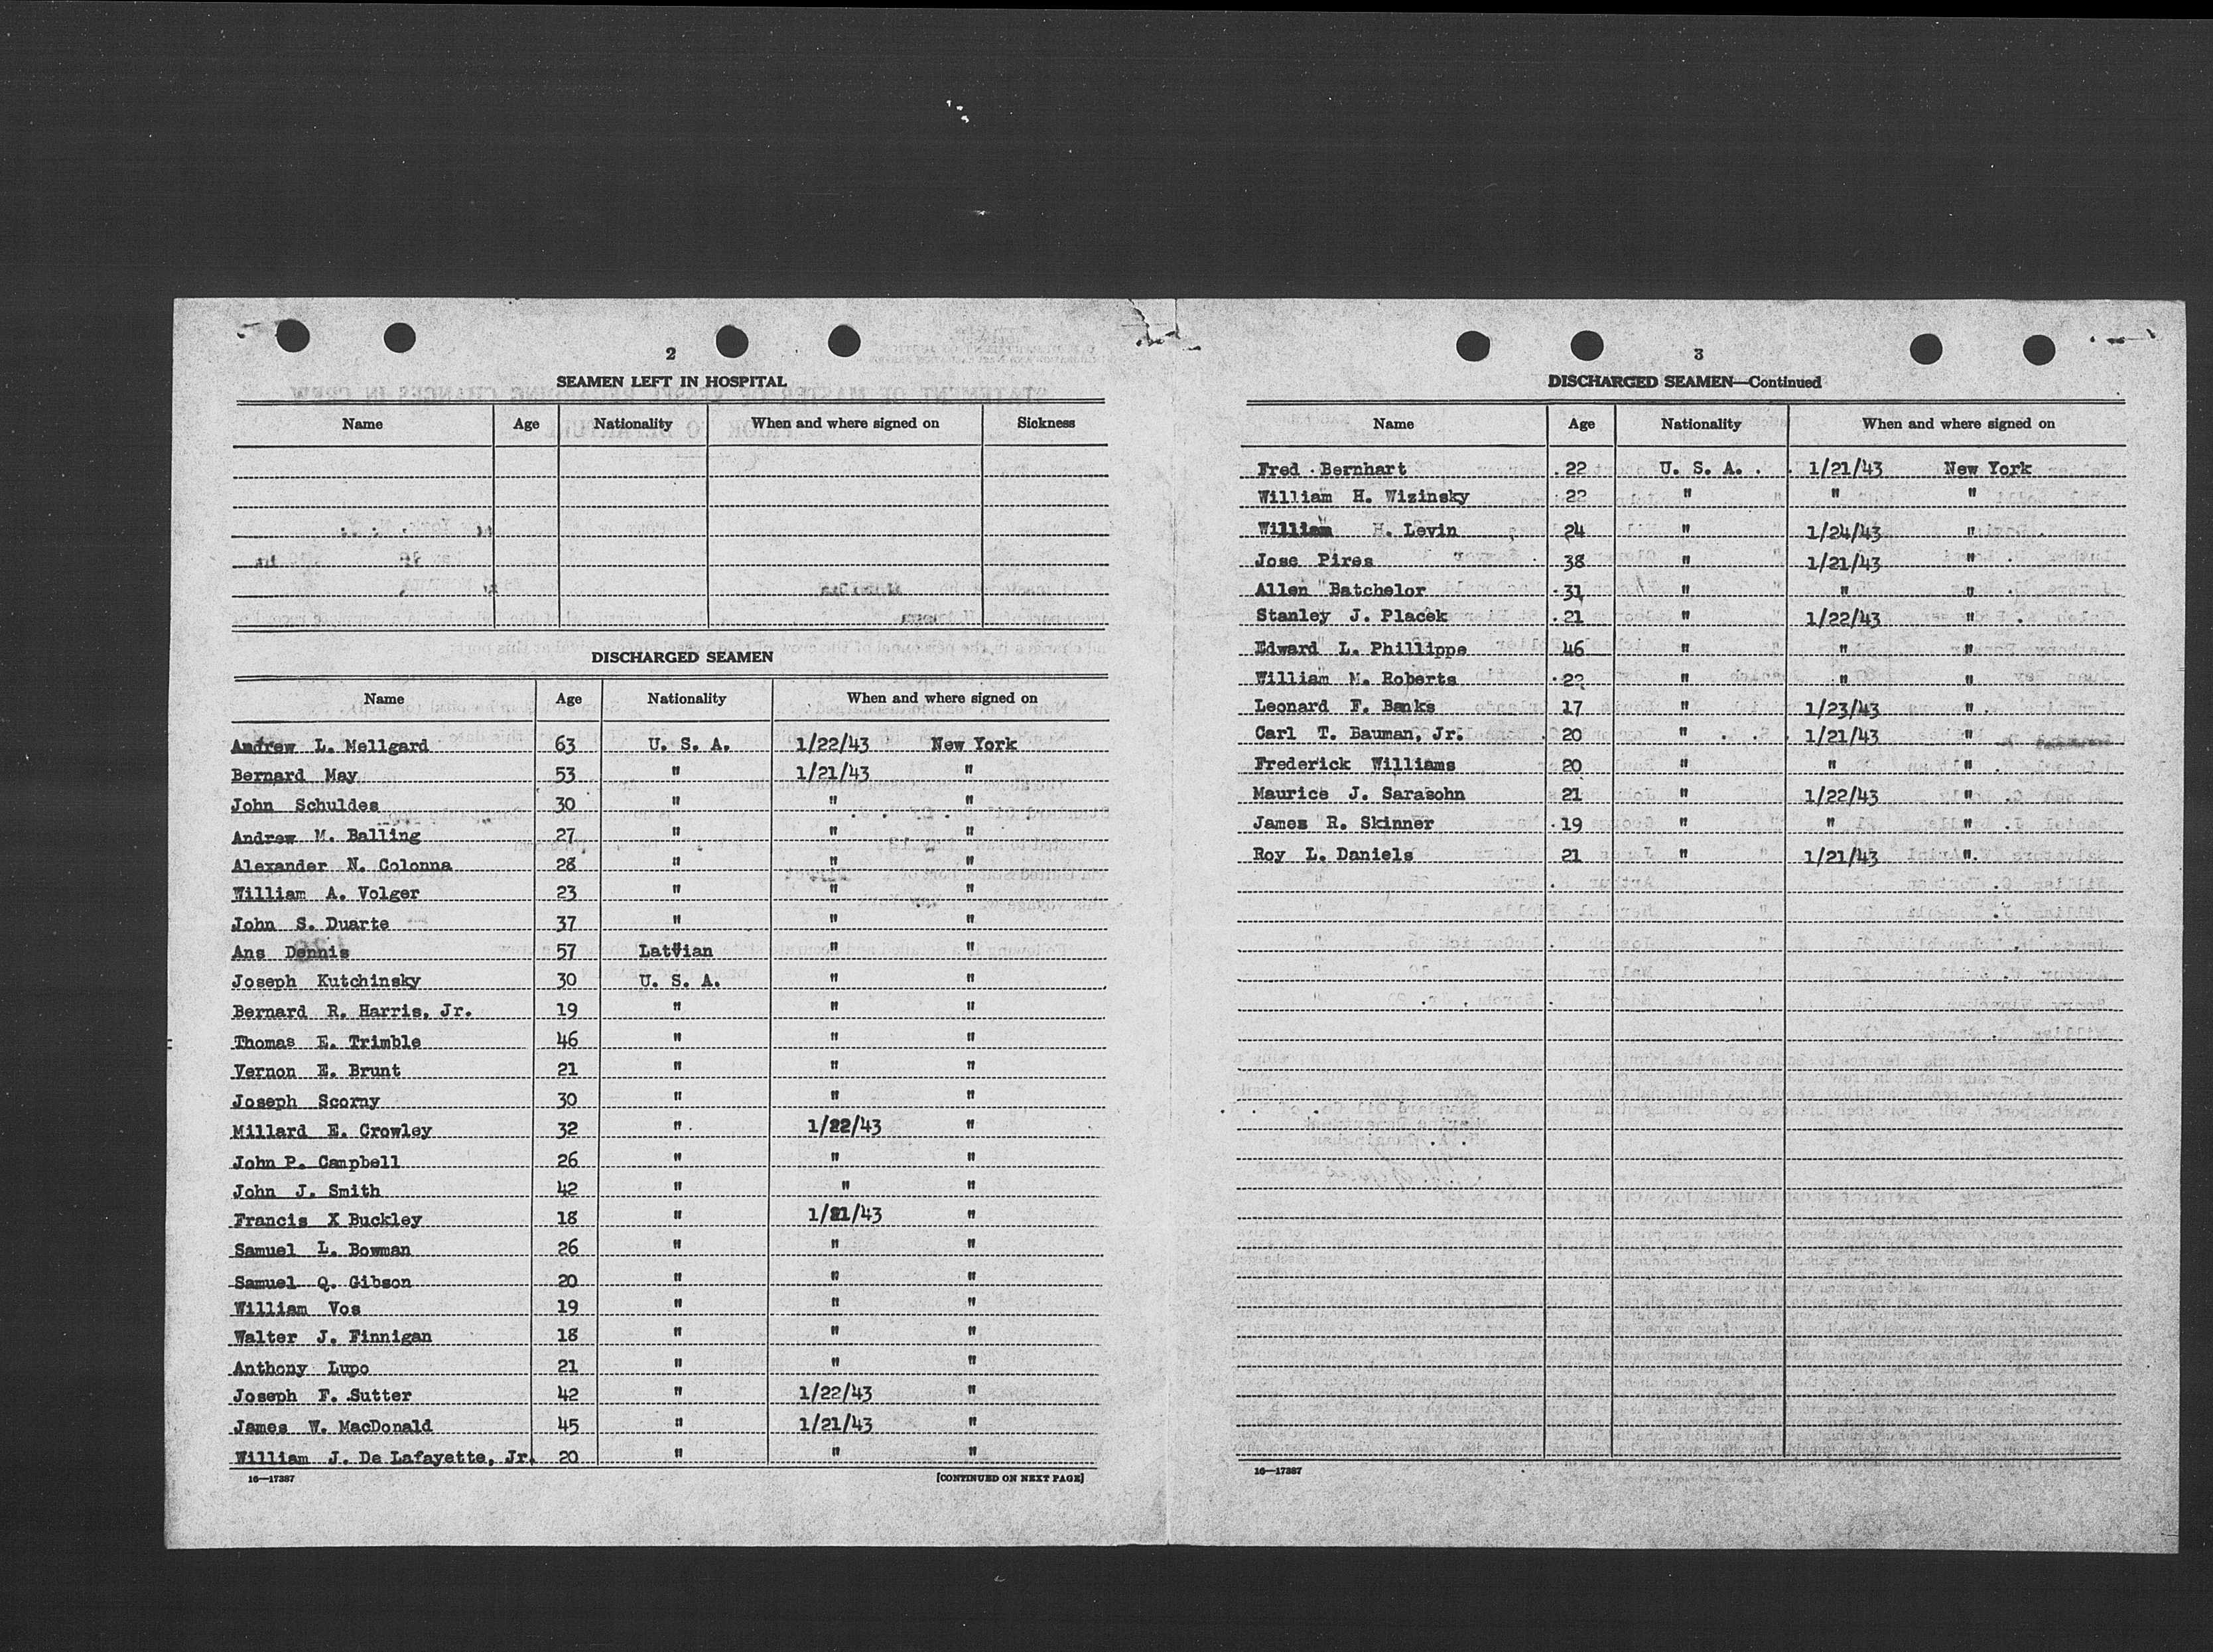 2
SEAMEN LEFT IN HOSPITAL
Name Age Nationality When and where signed on Sickness
DISCHARGED SEAMEN
Name Age Nationality When and where signed on
Andrew L. Mellgard 63 U. S. A. 1/22/43 New York
Bernard May 53 " 1/21/43 "
John Schuldes 30 " " "
Andrew M. Balling 27 " " "
Alexander N. Colonna 28 " " "
William A. Volger 23 " " "
John S. Duarte 37 " " "
Ans Dennis 57 Latvian " "
Joseph Kutchinsky 30 U. S. A. " "
Bernard R. Harris, Jr. 19 " " "
Thomas E. Trimble 46 " " "
Vernon E. Brunt 21 " " "
Joseph Scorny 30 " " "
Millard E. Crowley 32 " 1/22/43 "
John P. Campbell 26 " " "
John J. Smith 42 " " "
Francis X Buckley 18 " 1/21/43 "
Samuel L. Bowman 26 " " "
Samuel Q. Gibson 20 " " "
William Vos 19 " " "
Walter J. Finnigan 18 " " "
Anthony Lupo 21 " " "
Joseph F. Sutter 42 " 1/22/43 "
James W. MacDonald 45 " 1/21/43 "
William J. De Lafayette, Jr. 20 " " "
16—17387 [CONTINUED ON NEXT PAGE]
3
DISCHARGED SEAMEN—Continued
Name Age Nationality When and where signed on
Fred Bernhart 22 U. S. A. 1/21/43 New York
William H. Wizinsky 22 " " "
William H. Levin 24 " 1/24/43 "
Jose Pires 38 " 1/21/43 "
Allen Batchelor 31 " " "
Stanley J. Placek 21 " 1/22/43 "
Edward L. Phillippe 46 " " "
William M. Roberts 22 " " "
Leonard F. Banks 17 " 1/23/43 "
Carl T. Bauman, Jr. 20 " 1/21/43 "
Frederick Williams 20 " " "
Maurice J. Sarasohn 21 " 1/22/43 "
James R. Skinner 19 " " "
Roy L. Daniels 21 " 1/21/43 "
16—17387